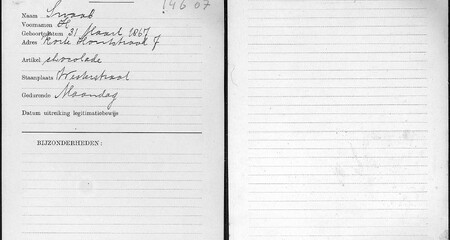 14607
Naam Swaab
Voornamen H
Geboortedatum 31 Maart 1867
Adres Korte Houtstraat 7
Artikel chocolade
Staanplaats Westerstraat
Gedurende Maandag
Datum uitreiking legitimatiebewijs
BIJZONDERHEDEN: